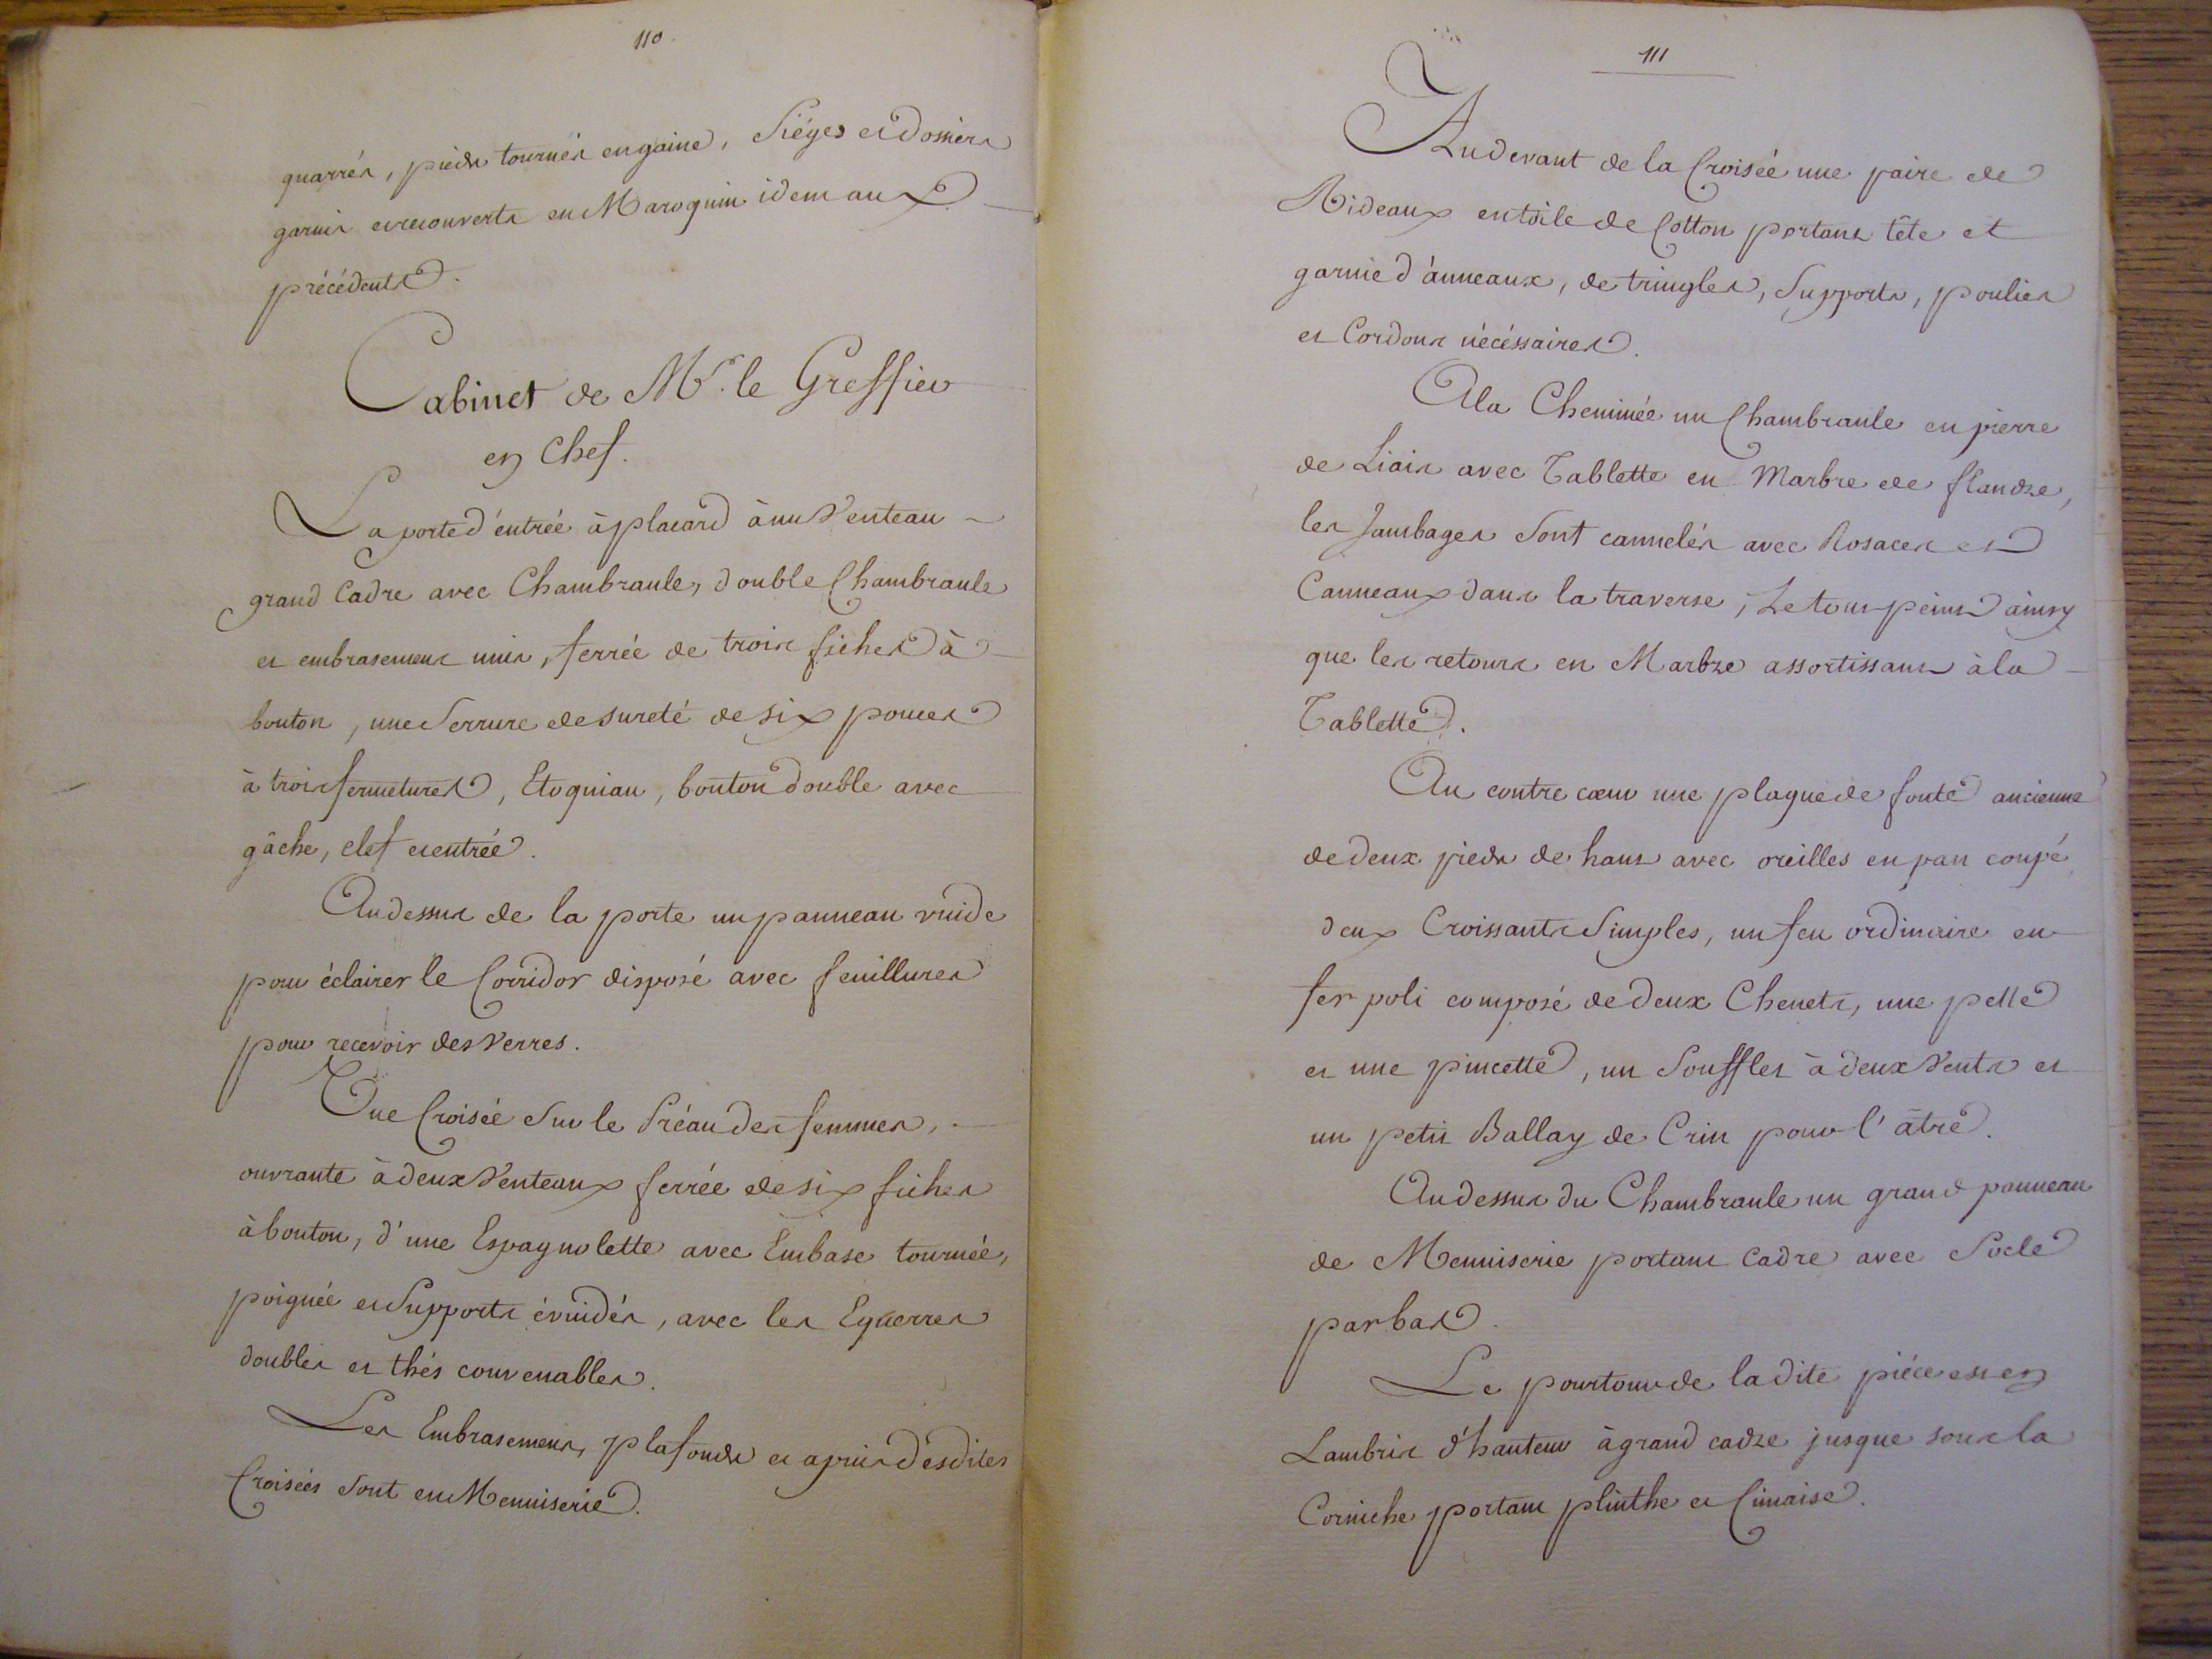 110.
quarrés, pieds tournés en gaine, Siéges et dossiers
garnis et recouverts en Maroquin idem aux
précédents.
Cabinet de Mr. le Greffier
en Chef.
La porte d'entrée à placard à un Venteau
grand Cadre avec Chambranle, double Chambranle
et embrasement unis, ferrée de trois fiches à
bouton, une Serrure de sureté de six pouces
à trois fermetures, Etoquiau, bouton double avec
gâche, clef et entrée.
Au dessus de la porte un panneau vuide
pour éclairer le Corridor disposé avec feuillures
pour recevoir des Verres.
Une Croisée Sur le Préau des femmes,
ouvrante à deux Venteaux ferrée de six fiches
à bouton, d'une Espagnolette avec Embase tournée,
poignée et Supports évuidés, avec les Equerres
doubles et thés convenables.
Les Embrasemens, plafonds et apuis désdites
Croisées Sont en Menuiserie.
111
Au devant de la Croisée une paire de
Rideaux en toile de Cotton portant tête et
garnie d'ânneaux, de tringles, Supports, poulies
et Cordons nécéssaires.
A la Cheminée un Chambranle en pierre
de Liais avec Tablette en Marbre de flandre,
les Jambages Sont cannelés avec Rosaces et
Canneaux dans la traverse, Le tout peint ainsy
que les retours en Marbre assortissant à la
Tablette.
Au contre cœur une plaque de fonte ancienne
de deux pieds de haut avec oreilles en pan coupé
deux Croissants Simples, un feu ordinaire en
fer poli composé de deux Chenets, une pelle
et une pincette, un Soufflet à deux Vents et
un petit Ballay de Crin pour l'âtre.
Au dessus du Chambranle un grand panneau
de Menuiserie portant Cadre avec Socle
par bas.
Le pourtour de la dite piéce est en
Lambris d'hauteur à grand cadre jusque sous la
Corniche portant plinthe et Cimaise.